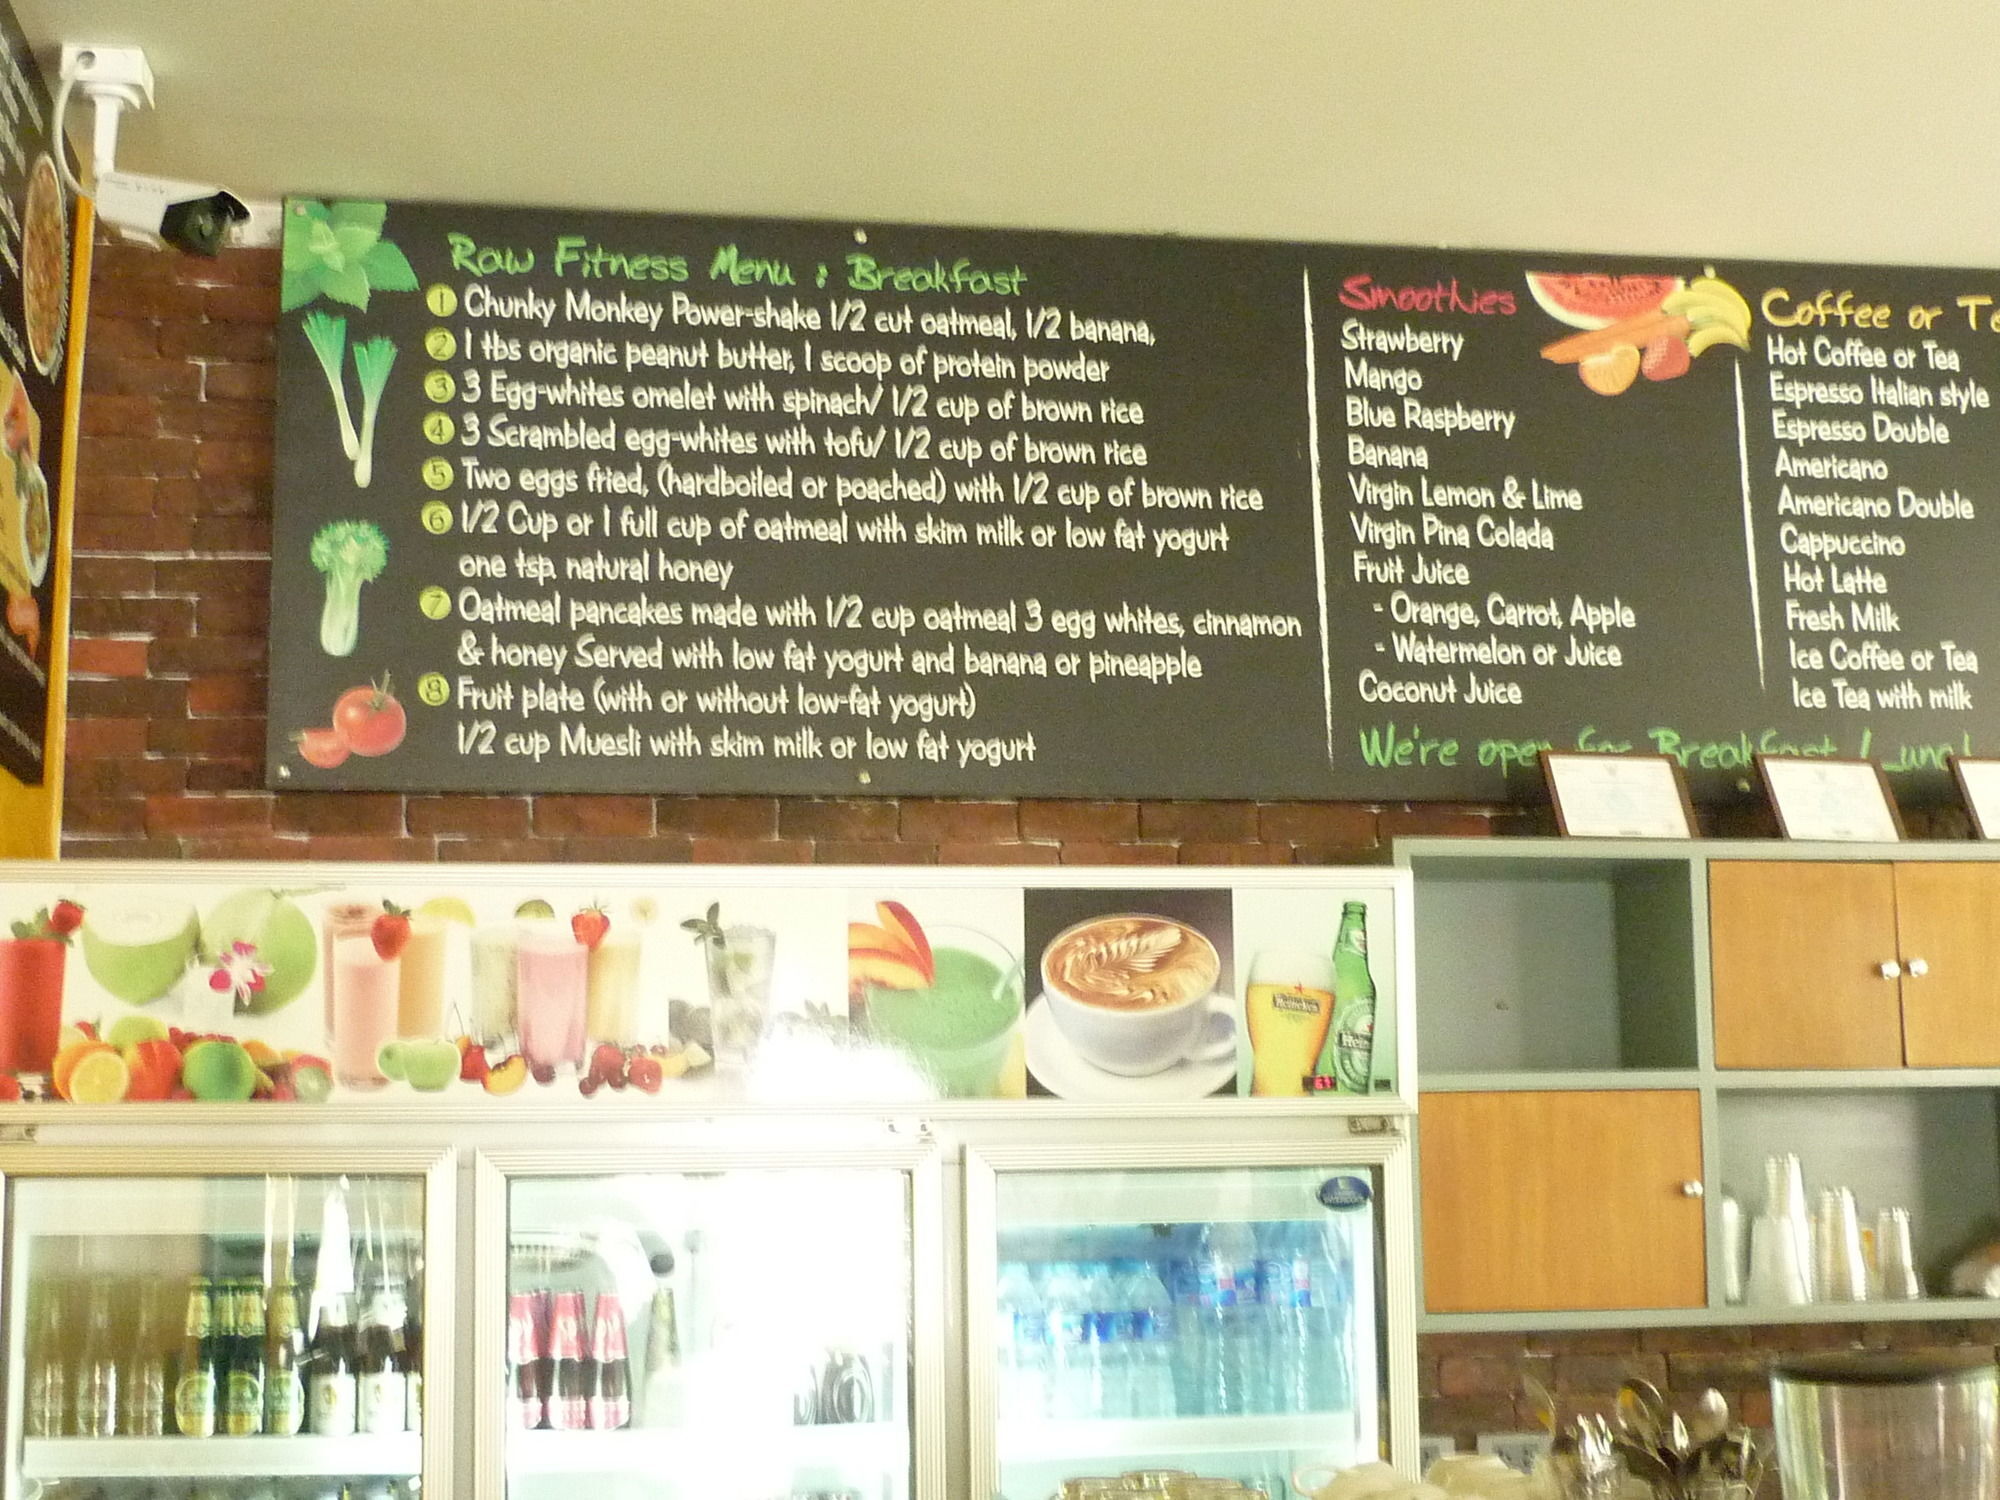 Raw Fitness Menu : Breakfast
1 Chunky Monkey Power-shake 1/2 cut oatmeal, 1/2 banana,
2 1 tbs organic peanut butter, 1 scoop of protein powder
3 3 Egg-whites omelet with spinach/ 1/2 cup of brown rice
4 3 Scrambled egg-whites with tofu/ 1/2 cup of brown rice
5 Two eggs fried, (hardboiled or poached) with 1/2 cup of brown rice
6 1/2 Cup or 1 full cup of oatmeal with skim milk or low fat yogurt
one tsp. natural honey
7 Oatmeal pancakes made with 1/2 cup oatmeal 3 egg whites, cinnamon
& honey Served with low fat yogurt and banana or pineapple
8 Fruit plate (with or without low-fat yogurt)
1/2 cup Muesli with skim milk or low fat yogurt
Smoothies
Strawberry
Mango
Blue Raspberry
Banana
Virgin Lemon & Lime
Virgin Pina Colada
Fruit Juice
- Orange, Carrot, Apple
- Watermelon or Juice
Coconut Juice
Coffee or Te
Hot Coffee or Tea
Espresso Italian style
Espresso Double
Americano
Americano Double
Cappuccino
Hot Latte
Fresh Milk
Ice Coffee or Tea
Ice Tea with milk
We're open for Breakfast Lunch
Heineken
Hein